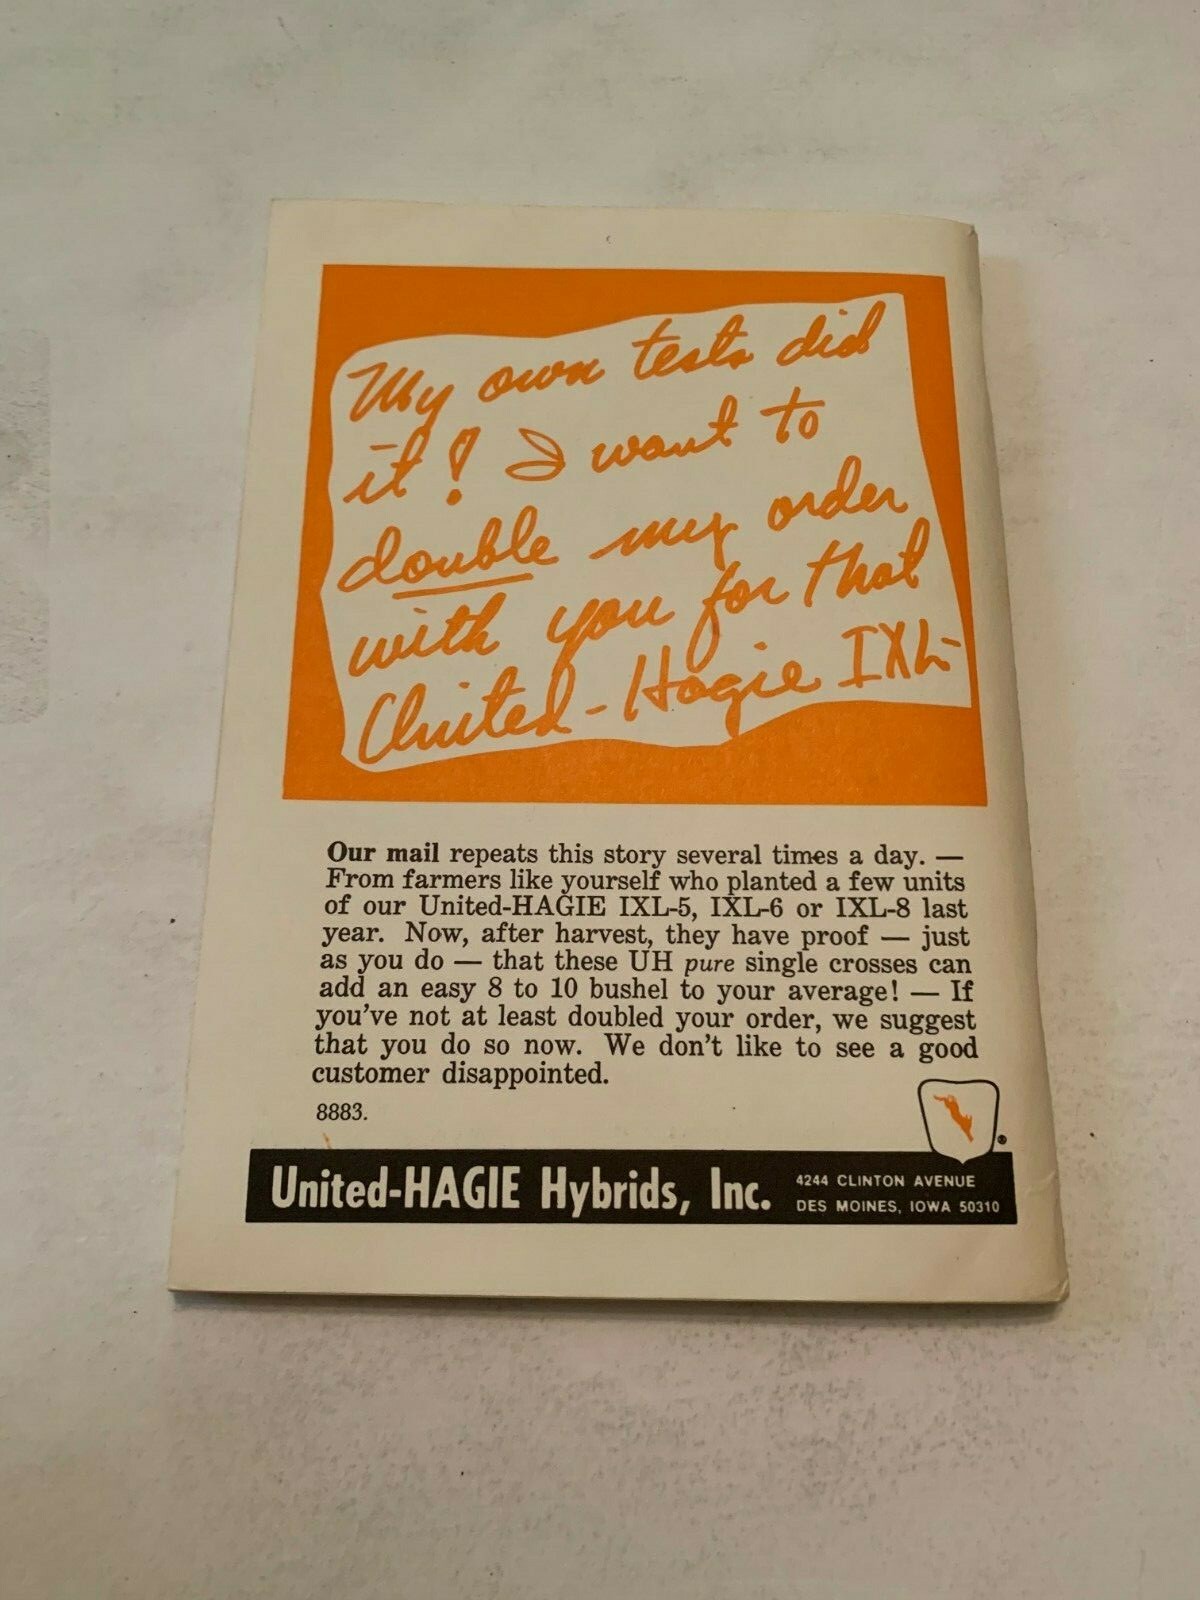 My own tests did
it! I want to
double my order
with you for that
United-Hagie IXL-
Our mail repeats this story several times a day. —
From farmers like yourself who planted a few units
of our United-HAGIE IXL-5, IXL-6 or IXL-8 last
year. Now, after harvest, they have proof — just
as you do — that these UH pure single crosses can
add an easy 8 to 10 bushel to your average! — If
you've not at least doubled your order, we suggest
that you do so now. We don't like to see a good
customer disappointed.
8883.
®
United-HAGIE Hybrids, Inc.
4244 CLINTON AVENUE
DES MOINES, IOWA 50310